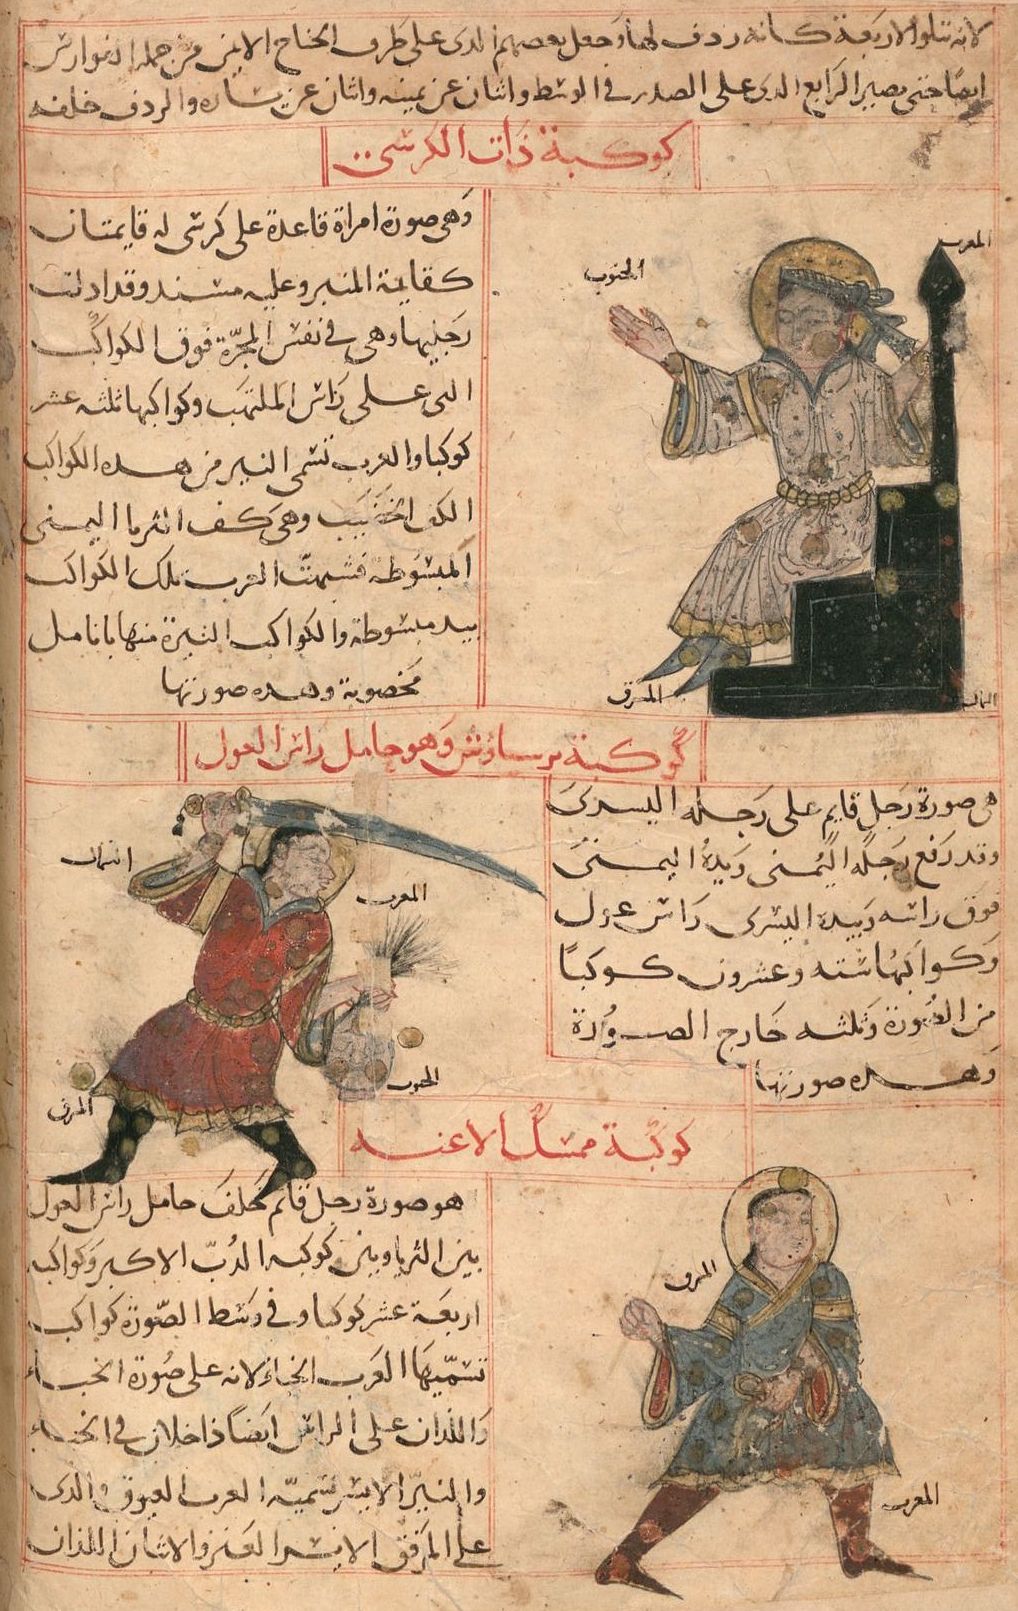 لانه تتلوا الاربعة كانه ردف لها وجعل بعضهم الدى على طرف الجناح الايمن من جملة الفوارس
ايضا حتى يصير الرابع الدى على الصدر فى الوسط واثنان عن يمينه واثنان عن يساره والردف خلفه
كوكبة ذات الكرسى
وهى صورة امراة قاعدة على كرسى له قايمتان
كقايمة المنبر وعليه مسند وقد ادلت
رجليها وهى فى نفس المجرة فوق الكواكب
التى على راس الملتهب وكواكبها ثلثه عشر
كوكبا والعرب تسمى النير من هده الكواكب
الكف الخضيب وهى كف الثريا اليمنى
المبسوطة فشبهت العرب تلك الكواكب
بيد مبسوطة والكواكب النيرة منها بانامل
مخضوبة وهده صورتها
المغرب
الجنوب
المشرق
الشمال
كوكبة برساوش وهو حامل راس الغول
هى صورة رجل قايم على رجله اليسرى
وقد رفع رجله اليمنى ويده اليمنى
فوق راسه وبيده اليسرى راس غول
وكواكبها ستة وعشرون كوكبا
من الصورة وثلثه خارج الصورة
وهده صورتها
الشمال
المغرب
الجنوب
المشرق
كوكبة ممسك الاعنه
هو صورة رجل قايم خلف حامل راس الغول
بين الثريا وبين كوكبه الدب الاكبر وكواكبه
اربعة عشر كوكبا وفى وسط الصورة كواكب
تسميها العرب الخباء لانه على صورة الخباء
واللذان على الراس ايضا داخلان فى الخباء
والنير الايسر تسميه العرب العيوق والدى
على المرفق الايسر العنز والاثنان اللذان
المشرق
المغرب